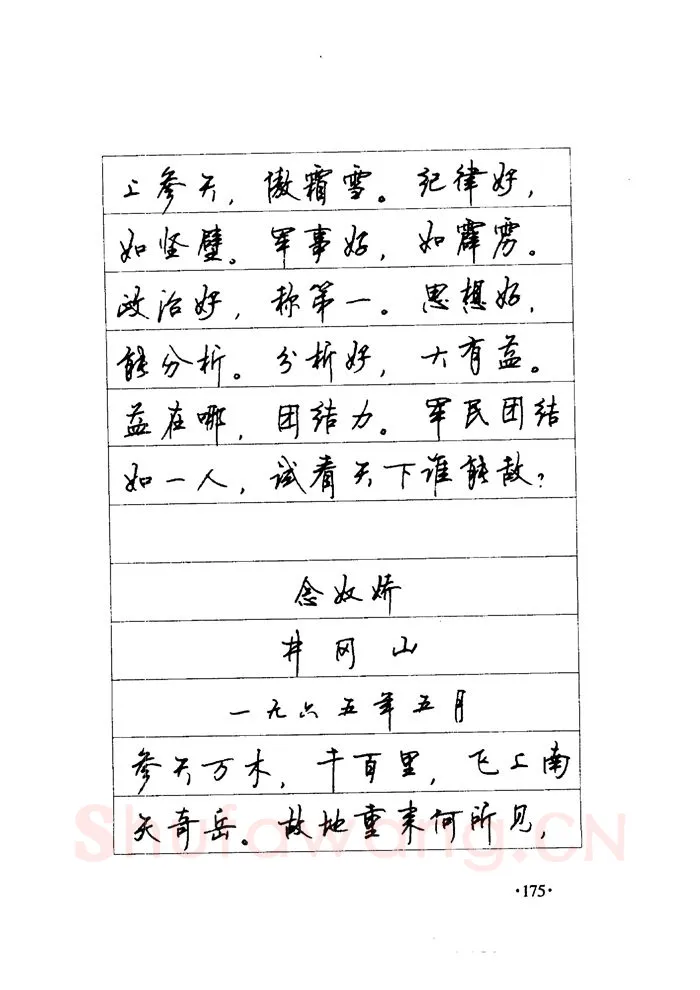 上参天，傲霜雪。纪律好，
如坚壁。军事好，如霹雳。
政治好，称第一。思想好，
能分析。分析好，大有益。
益在哪，团结力。军民团结
如一人，试看天下谁能敌？
念奴娇
井冈山
一九六五年五月
参天万木，千百里，飞上南
天奇岳。故地重来何所见，
Shufawang.CN
·175·